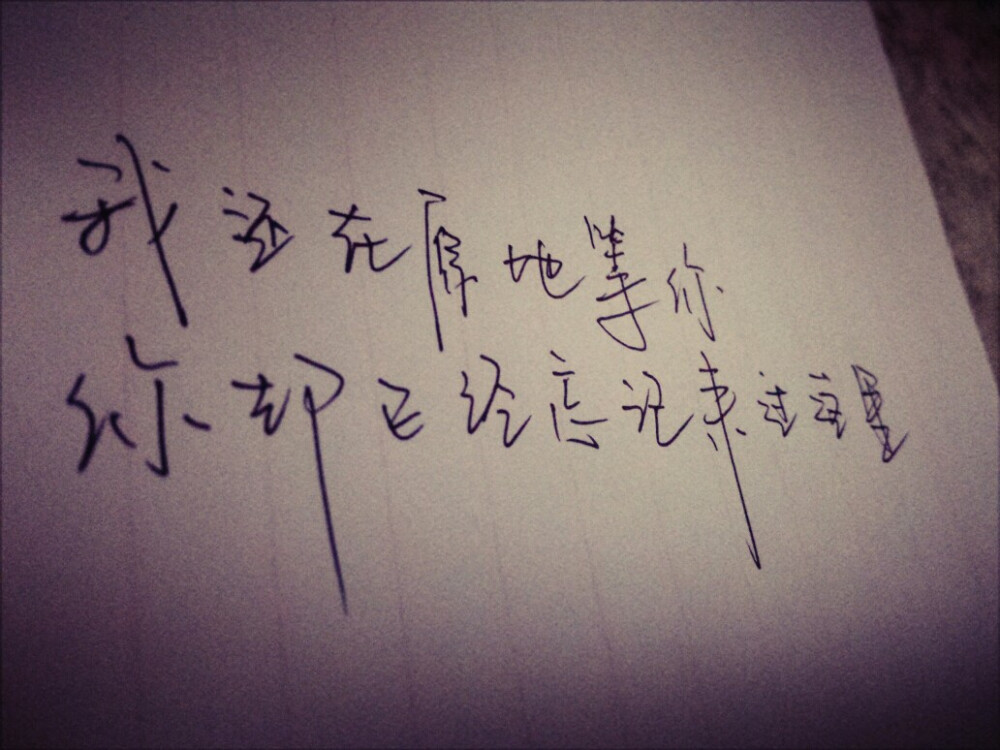 我还在原地等你
你却已经忘记来过这里